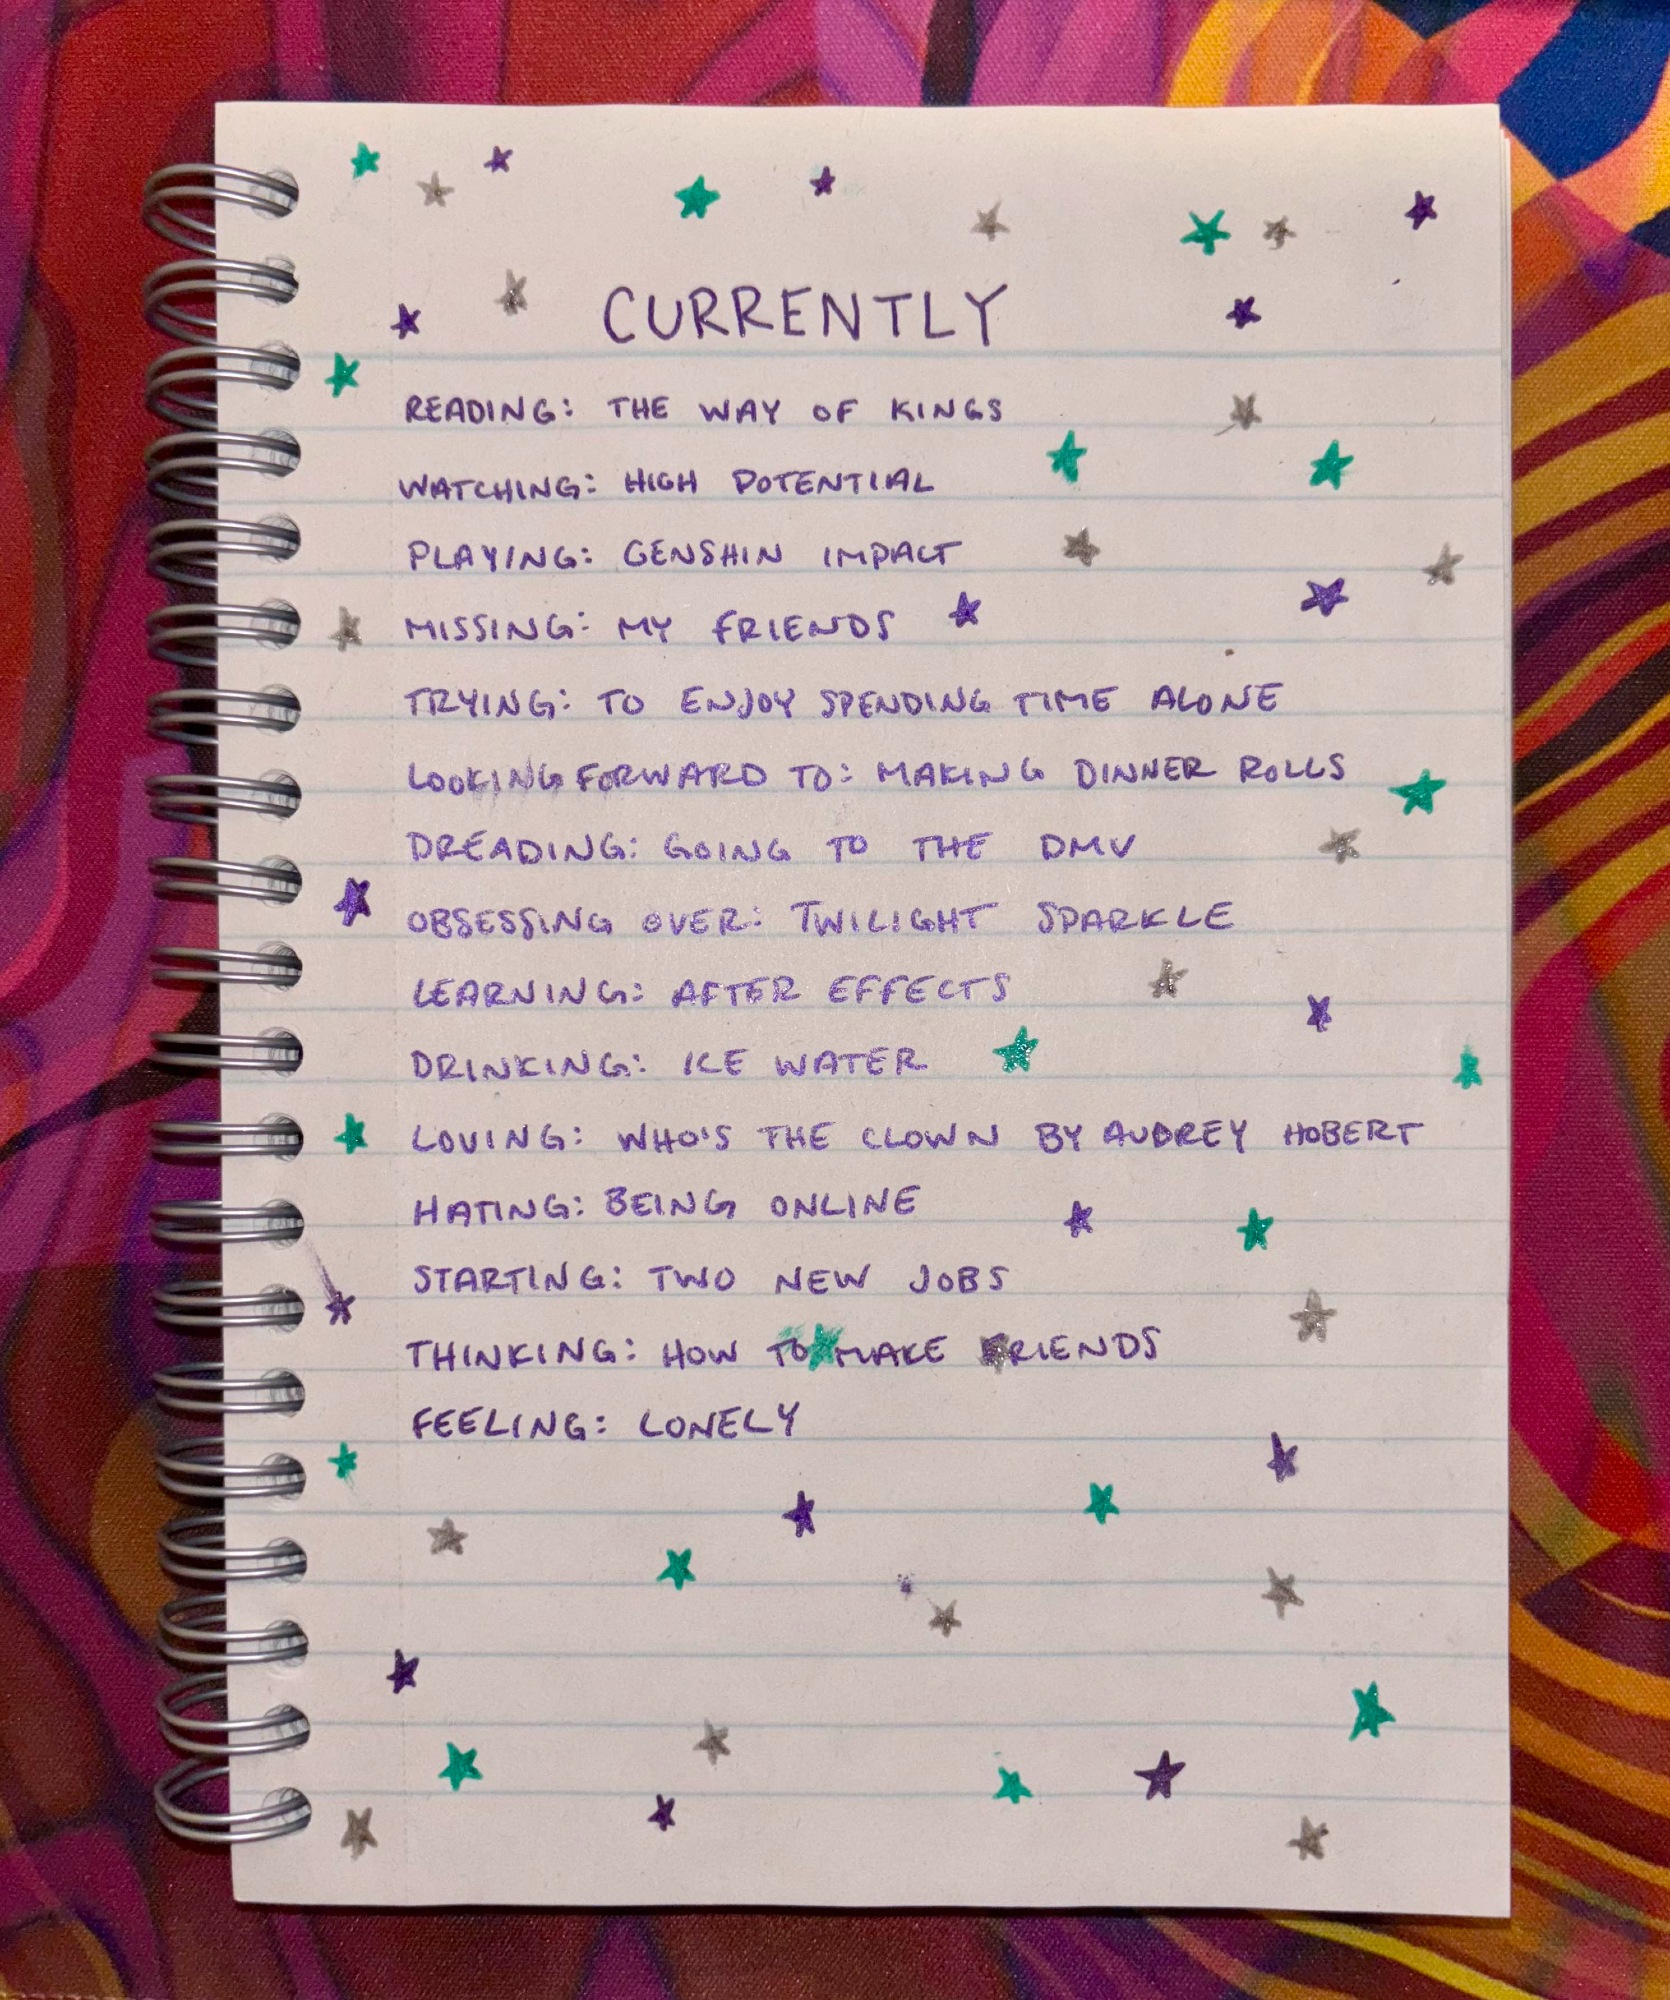 CURRENTLY
READING: THE WAY OF KINGS
WATCHING: HIGH POTENTIAL
PLAYING: GENSHIN IMPACT
MISSING: MY FRIENDS
TRYING: TO ENJOY SPENDING TIME ALONE
LOOKING FORWARD TO: MAKING DINNER ROLLS
DREADING: GOING TO THE DMV
OBSESSING OVER: TWILIGHT SPARKLE
LEARNING: AFTER EFFECTS
DRINKING: ICE WATER
LOVING: WHO'S THE CLOWN BY AUDREY HOBERT
HATING: BEING ONLINE
STARTING: TWO NEW JOBS
THINKING: HOW TO MAKE FRIENDS
FEELING: LONELY